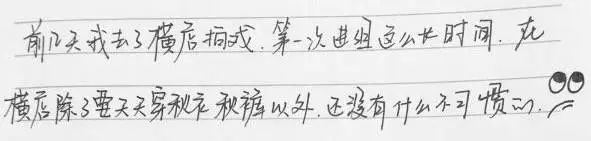 前几天我去了横店拍戏.第一次进组这么长时间.在
横店除了要天天穿秋衣秋裤以外.还没有什么不习惯的.